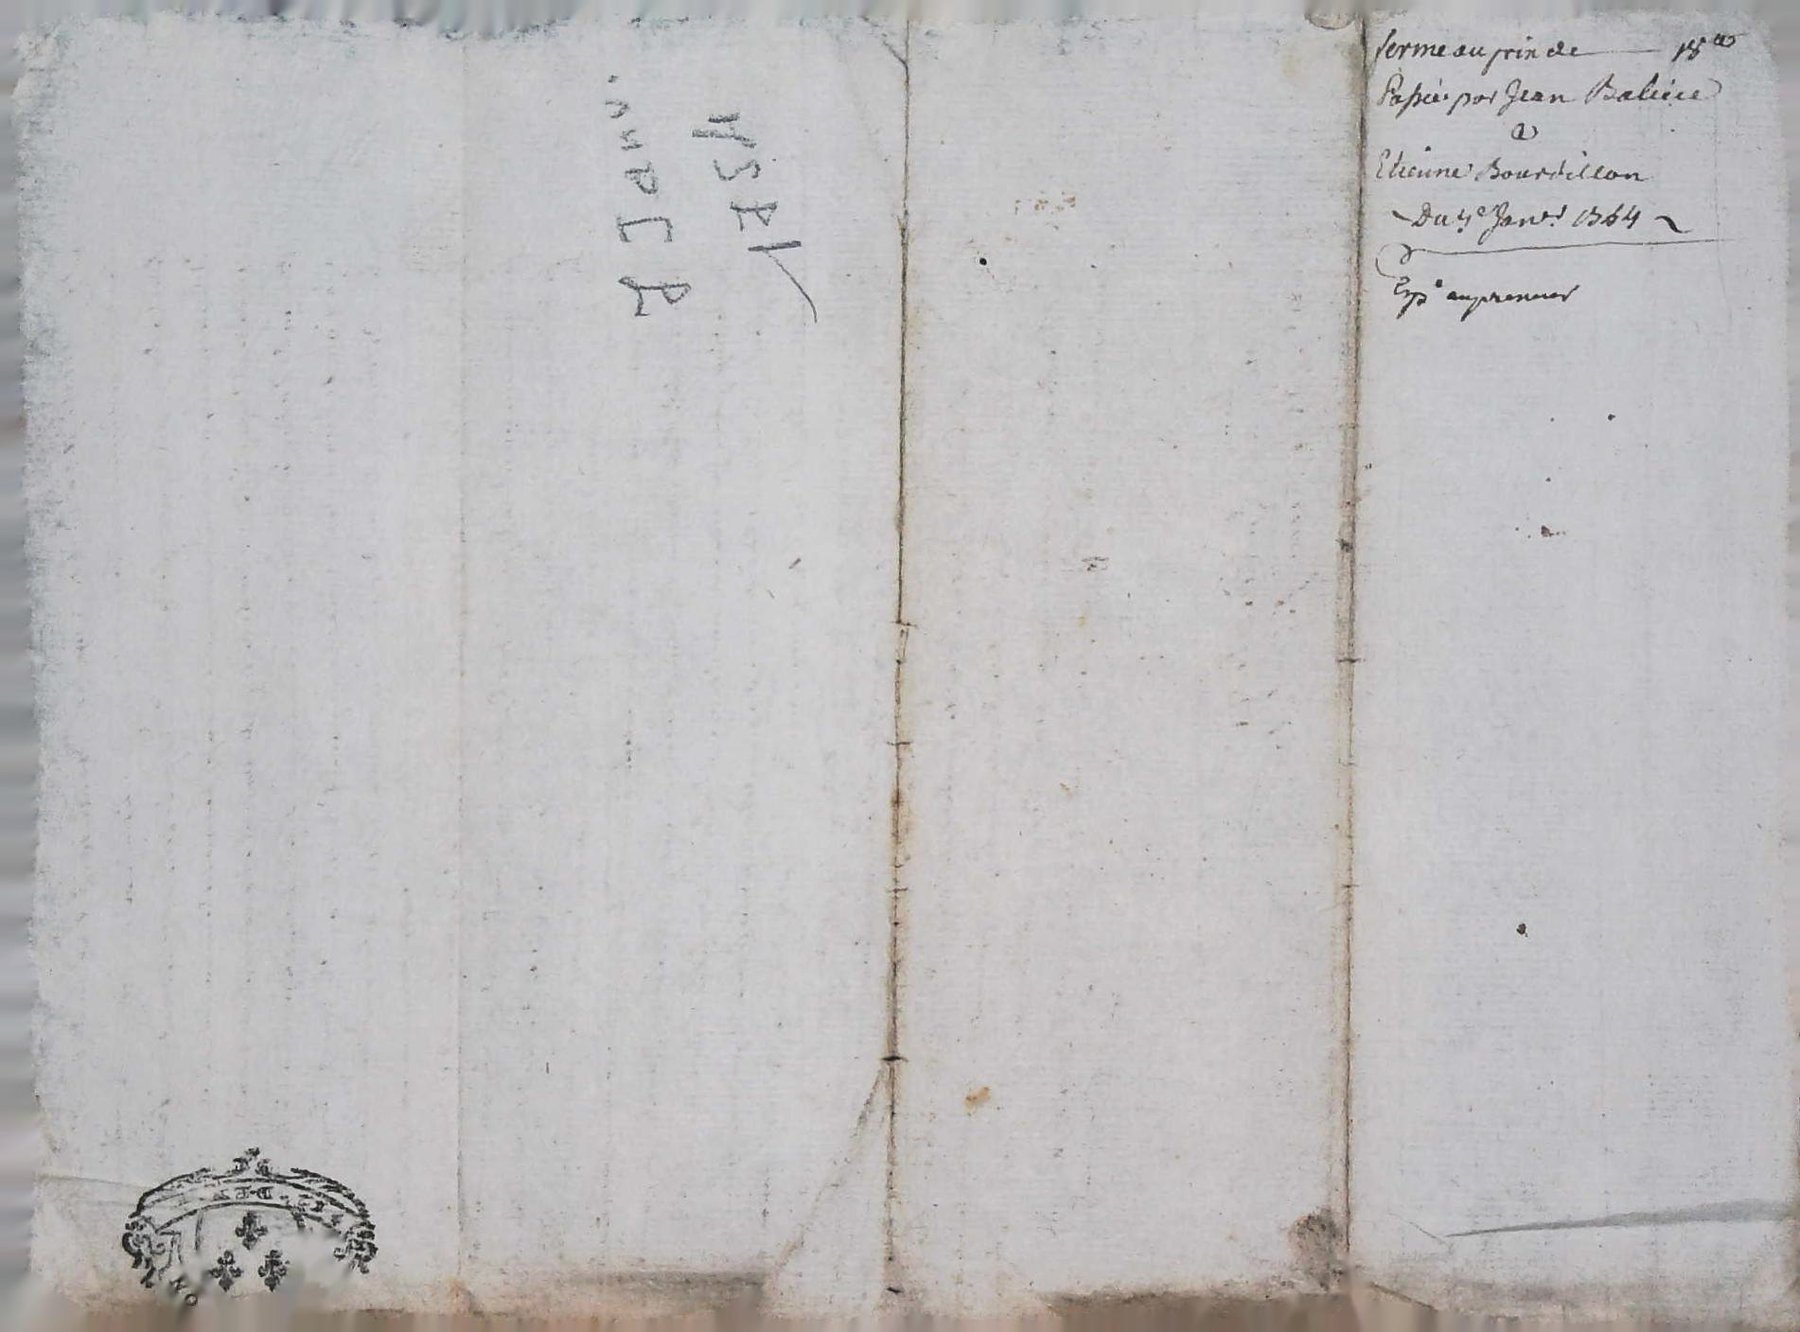 ferme au prix de — 18 ᵗᵗ
Passée par Jean Baliére
a
Etienne Bourdillon
Du 4e Janer 1764
Expe au preneur
2 Janv.
1754